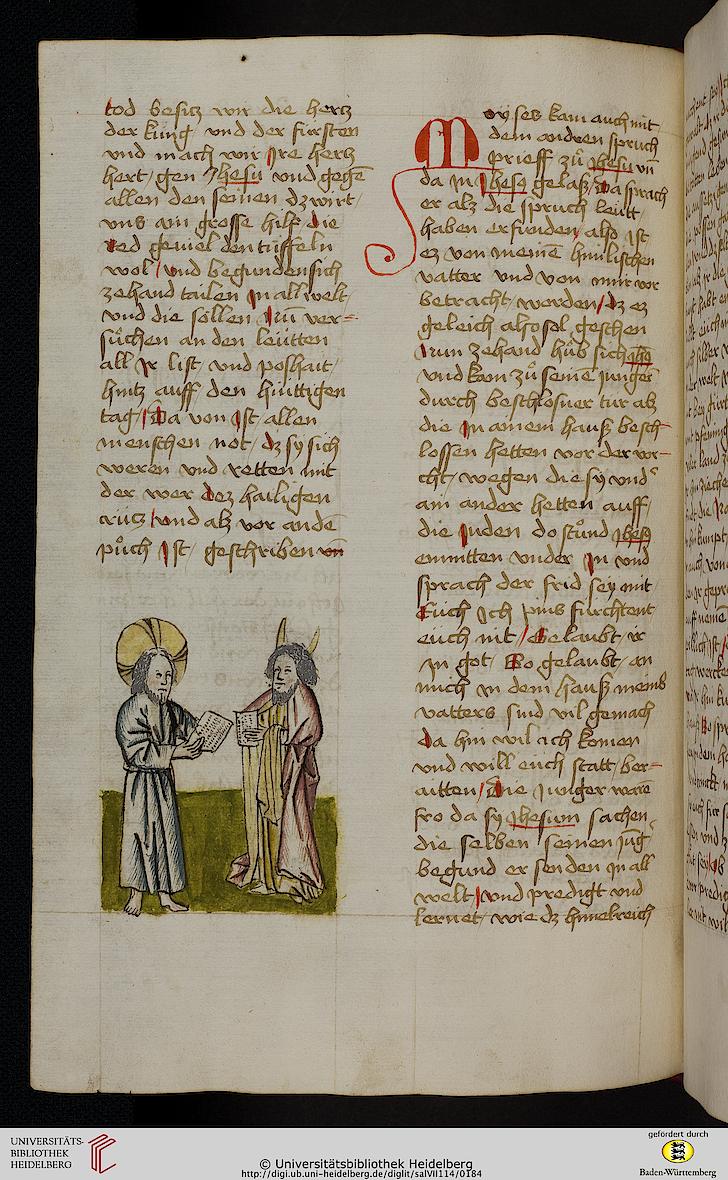 tod besitz wir die hertz
der küng / vnd der fürsten
vnd mach wir Ire hertz
hert / gen Jhesu vnd gegē
allen den seinen dz wirt /
vns ain grosse hilf die
red geuiel den tüffeln
wol / vnd begunden sich
zehand tailen In all welt /
vnd die söllen Nu ver=
sůchen an den leütten
all Ir list / vnd poshait /
hintz auff den hüttigen
tag / Da von Ist allen
menschen not / dz sy sich
weren vnd retten mit
der wer dez hailigen
crütz / vnd alz vor andē
půch Ist / geschriben vn̄
Moyses kam auch mit
dem andren spruch
prieff zů Jhesu vn̄
da In Jhesꝯ gelaß / Da sprach
er alz die spruch leütt /
haben erfunden also Ist
ez von meinē himlischen
vatter vnd von mir vor
betracht / worden / dz ez
geleich also sol geschen
Nun zehand hůb sich Jhꝯ
vnd kam zů seinē junger
durch beschlosner tür alz
die In ainem hauß besch=
lossen hetten vor der vor=
cht / wegen die sy vnd
ain ander hetten auff /
die Juden do stůnd Jhesꝯ
enmitten vnder In vnd
sprach der frid sey mit
Euch Ich pins fürchtent
euch nit / Gelaubt / ir
In got / So gelaubt / an
mich in dem hauß meins
vatters sind vil gemach
da hin wil ich komen
vnd will euch statt / ber=
aitten / Die Junger warē
fro da sy Jhesum sachen
die selben seinen Jūg
begund er senden In all
welt / vnd predigt vnd
lernet / wie dz himelreich
UNIVERSITÄTS-
BIBLIOTHEK
HEIDELBERG
© Universitätsbibliothek Heidelberg
http://digi.ub.uni-heidelberg.de/diglit/salVII114/0184
gefördert durch
Baden-Württemberg